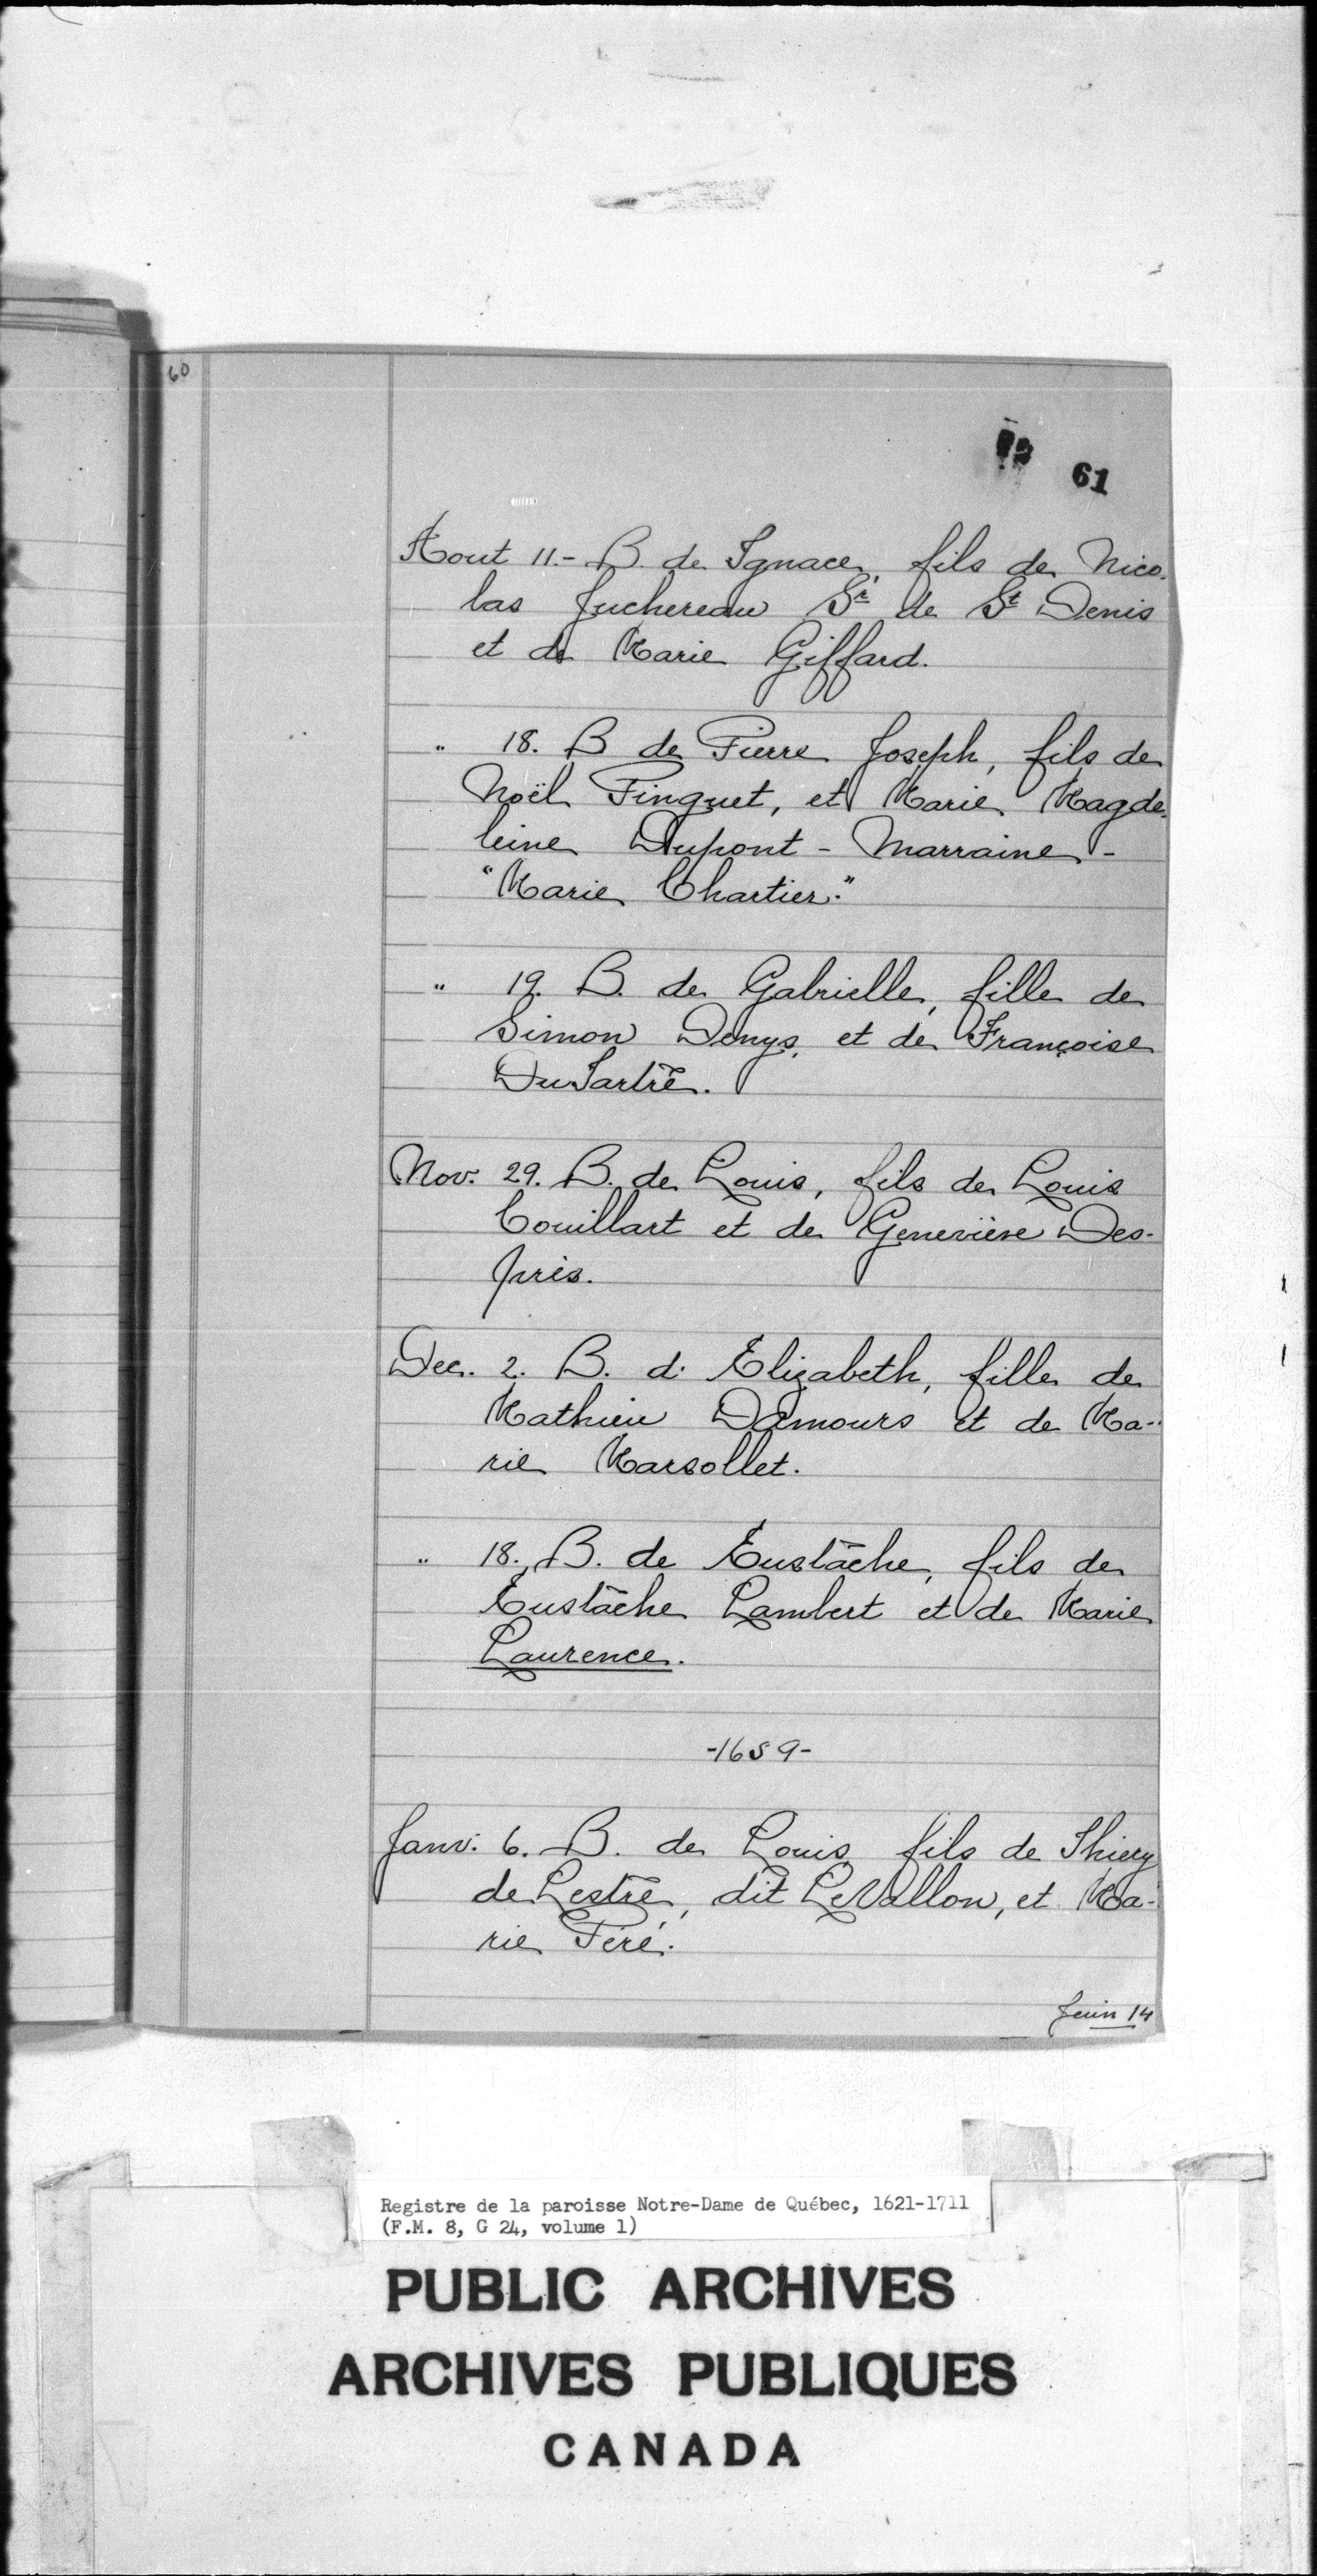 60
61
Aout 11.- B. de Ignace, fils de Nico-
las Juchereau Sr de St Denis
et de Marie Giffard.
" 18. B de Pierre Joseph, fils de
Noël Pinguet, et Marie Magde-
leine Dupont - Marraine -
"Marie Chartier."
" 19. B. de Gabrielle, fille de
Simon Denys, et de Françoise
DuTartre.
Nov. 29. B. de Louis, fils de Louis
Couillart et de Geneviève Des-
prés.
Dec. 2. B. d' Elizabeth, fille de
Mathieu Damours et de Ma-
rie Marsollet.
" 18. B. de Eustache, fils de
Eustache Lambert et de Marie
Laurence.
-1659-
Janv. 6. B. de Louis, fils de Thiery
de Lestre, dit LeVallon, et Ma-
rie Péré.
Juin 14
Registre de la paroisse Notre-Dame de Québec, 1621-1711
(F.M. 8, G 24, volume 1)
PUBLIC ARCHIVES
ARCHIVES PUBLIQUES
CANADA